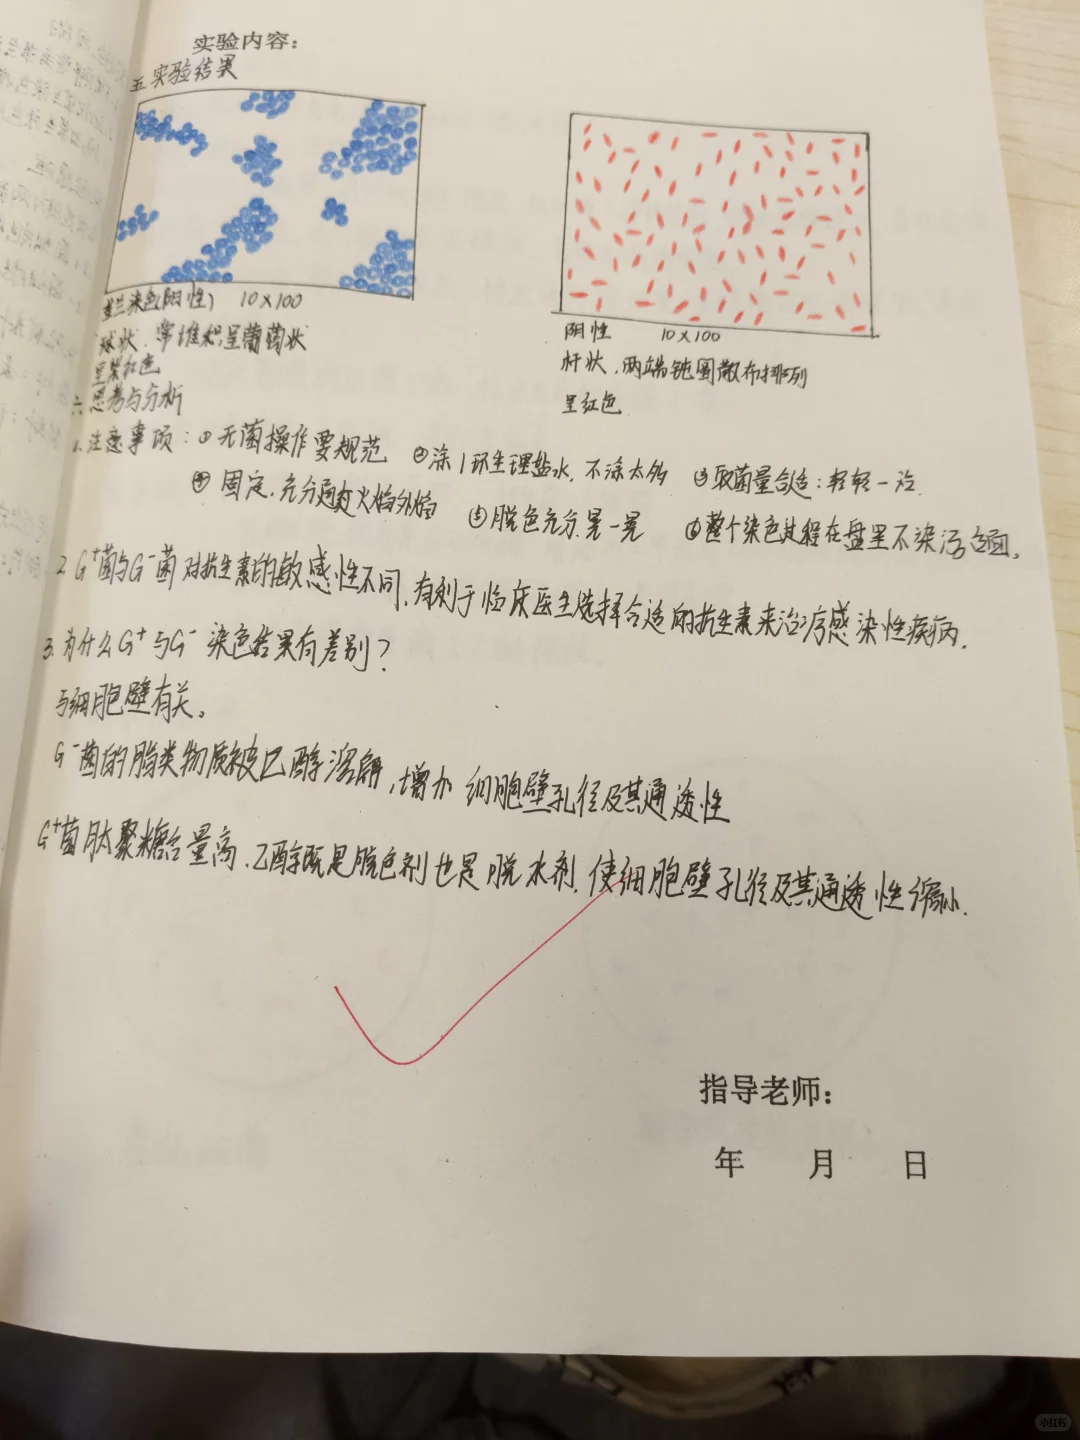 实验内容:
五.实验结果
革兰染色(阴性) 10×100
球状.常堆积呈葡萄状
呈紫红色
阴性 10×100
杆状.两端钝圆散布排列
呈红色
六.思考与分析
1.注意事项:①无菌操作要规范 ②涂1环生理盐水,不涂太多 ③取菌量合适:轻轻一
④固定.充分通过火焰外焰 ⑤脱色充分.晃一晃 ⑥整个染色过程在盘里不染污台面。
2.G⁺菌与G⁻菌对抗生素的敏感性不同.有利于临床医生选择合适的抗生素来治疗感染性疾病.
3.为什么G⁺与G⁻染色结果有差别?
与细胞壁有关。
G⁻菌的脂类物质被乙醇溶解,增加细胞壁孔径及其通透性
G⁺菌肽聚糖含量高.乙醇既是脱色剂也是脱水剂.使细胞壁孔径及其通透性缩小.
指导老师:
年 月 日
小红书